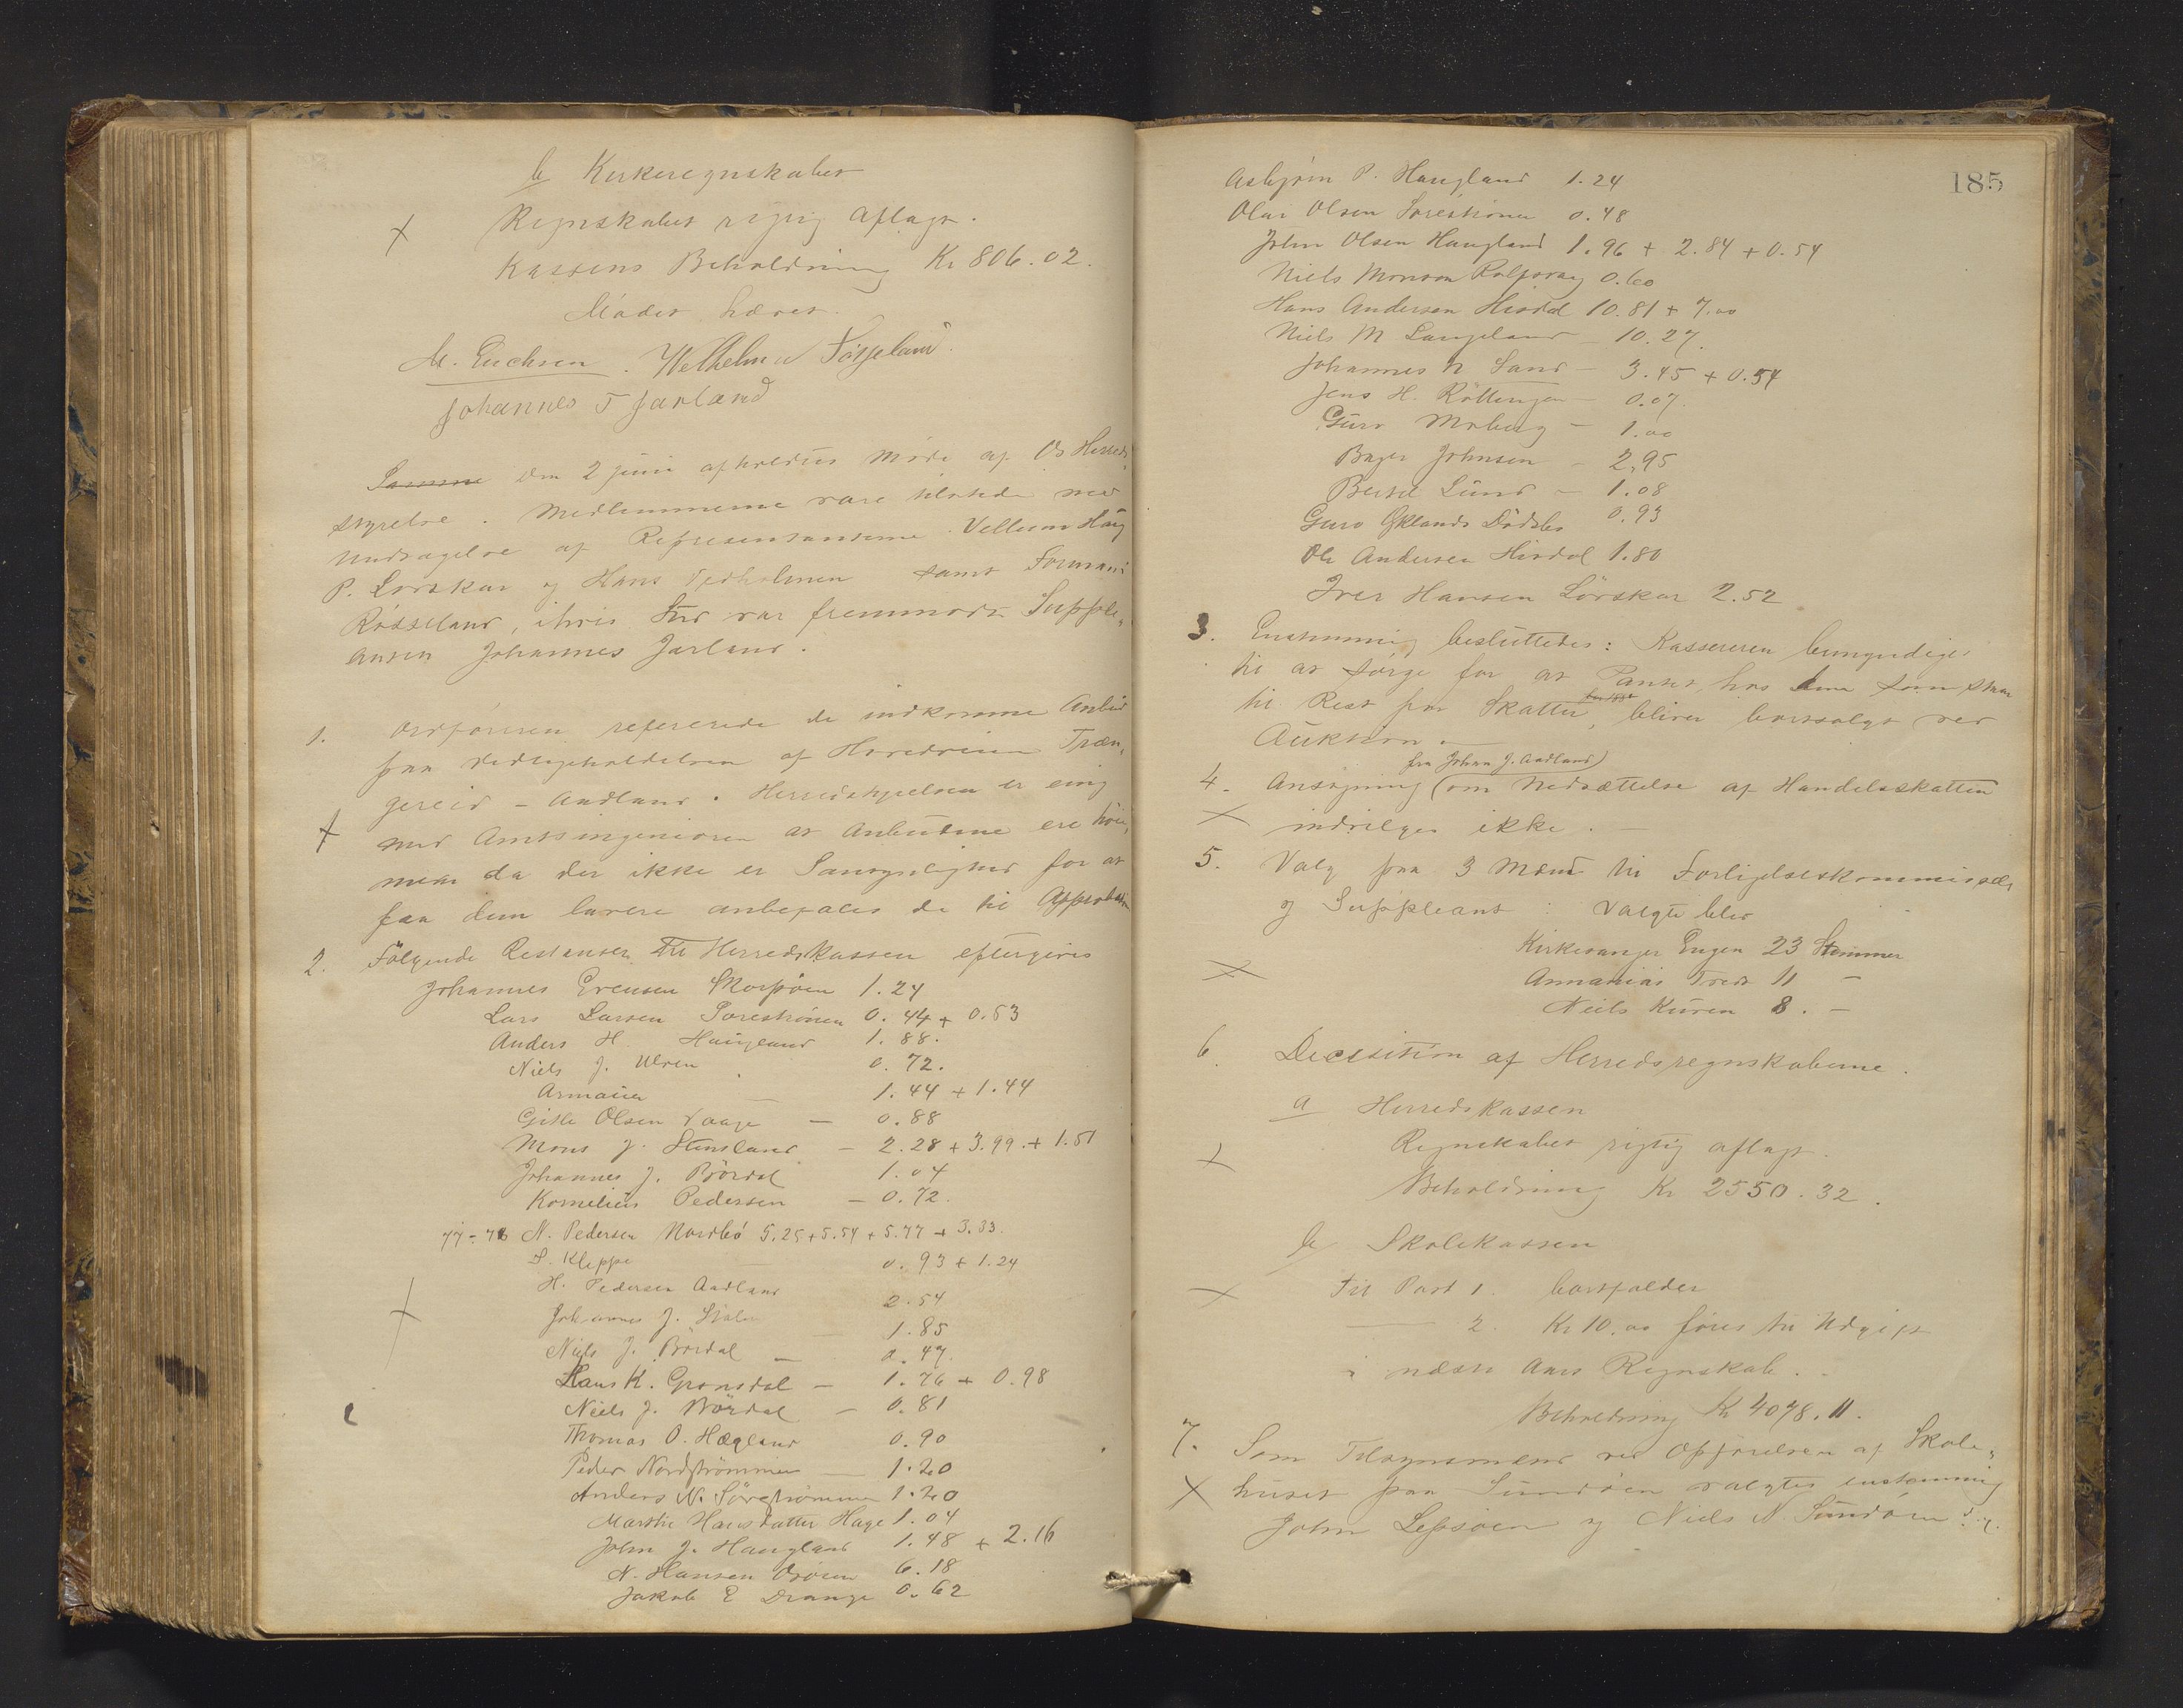 b Kirkeregnskabet
X Regnskabet rigtig aflagt.
Kassens Beholdning Kr 806.02.
Mødet hævet.
M. Erichsen. Wilhelm
Johannes T Jarland
Samme den 2 juni afholdtes Møde af Os Herreds-
styrelse. Medlemmerne vare tilstede med
Undtagelse af Repræsentanterne Vellum Haug
P. Lorskar og Hans samt Formand
Røsseland, i hvis Sted var fremmødt Supple-
anten Johannes Jarland.
1. Ordføreren refererede de indkomne Anbud
paa Vedligeholdelsen af Hovedveien Træn-
gereid - Aadland. Herredstyrelsen er enig
X med Amtsingeniøren at Anbudene ere høie,
men da der ikke er Sansynlighed for at
faa dem lavere anbefales de til Approbation
2. Følgende Restanser til Herredskassen eftergives
Johannes Evensen Skorpøen 1.24
Lars Larsen Sorestrønen 0.44 + 0.53
Anders H. Haugland 1.88.
Niels J. Ulven 0.72.
1.44 + 1.44
Gitle Olsen Vaage - 0.88
Mons J. Stensland - 2.28 + 3.99. + 1.51
Johannes J. Bördal 1.04
Kornelius Pedersen - 0.72.
77-78 N. Pedersen Nordbø 5.25 + 5.54 + 5.77 + 3.33.
S. Kleppe 0.93 + 1.24
H. Pedersen Aadland 2.54
X Johannes J. 1.85
Niels J. Bördal - 0.47.
Hans K. Gronsdal - 1.76 + 0.98
Niels J. Bördal - 0.81
Thomas O. Hægland 0.90
Peder Nordstrømmen - 1.20
Anders N. Sörestrømmen 1.20
Marthe Hansdatter Hage 1.04
John J. Haugland 1.48 + 2.16
N. Hansen 6.18
Jakob E Drange 0.62
185
Asbjørn P. Haugland 1.24
Olai Olsen Sorestrønen 0.48
John Olsen Haugland 1.96 + 2.84 + 0.54
Niels Monsen Rolfsvaag 0.60
Hans Andersen Hisdal 10.81 + 7.00
Niels M Langeland - 10.27.
Johannes N Sand - 3.45 + 0.54
Jens H. Röttingen - 0.07.
Guro Moberg - 1.00
Bager Johnsen - 2.95
Bertel Lund - 1.08
Guro Øklands Dödsbo 0.93
Ole Andersen Hisdal 1.80
Iver Hansen Lörskar 2.52
3. Enstemmig besluttedes: Kassereren bemyndiges
til at sørge for at Pantet hos dem som staar
til Rest paa Skatter, bliver bortsolgt ved
Auktion.
fra Johan J. Aadland)
4. Ansøgning (om Nedsættelse af Handelsskatten
X indvilges ikke.
5. Valg paa 3 Mænd til Forligelseskommissær
og Suppleant: Valgte blev
Kirkesanger Engen 23 Stemmer
X Annanias Tveit 11 -
Niels Kuven 8. -
6. Decisition af Herredsregnskaberne.
a Herredskassen
X Regnskabet rigtig aflagt.
Beholdning Kr 2550.32.
b Skolekassen
X Til Post 1. bortfalder
2. Kr 10.00 føres til Udgift
i næste Aars Regnskab.
Beholdning Kr 4078.11.
7. Som Tilsynsmænd ved Opførelsen af Skole-
X huset paa Sundøen valgtes enstemmig
John Lepsøen og Niels N. Sundøen d.y.